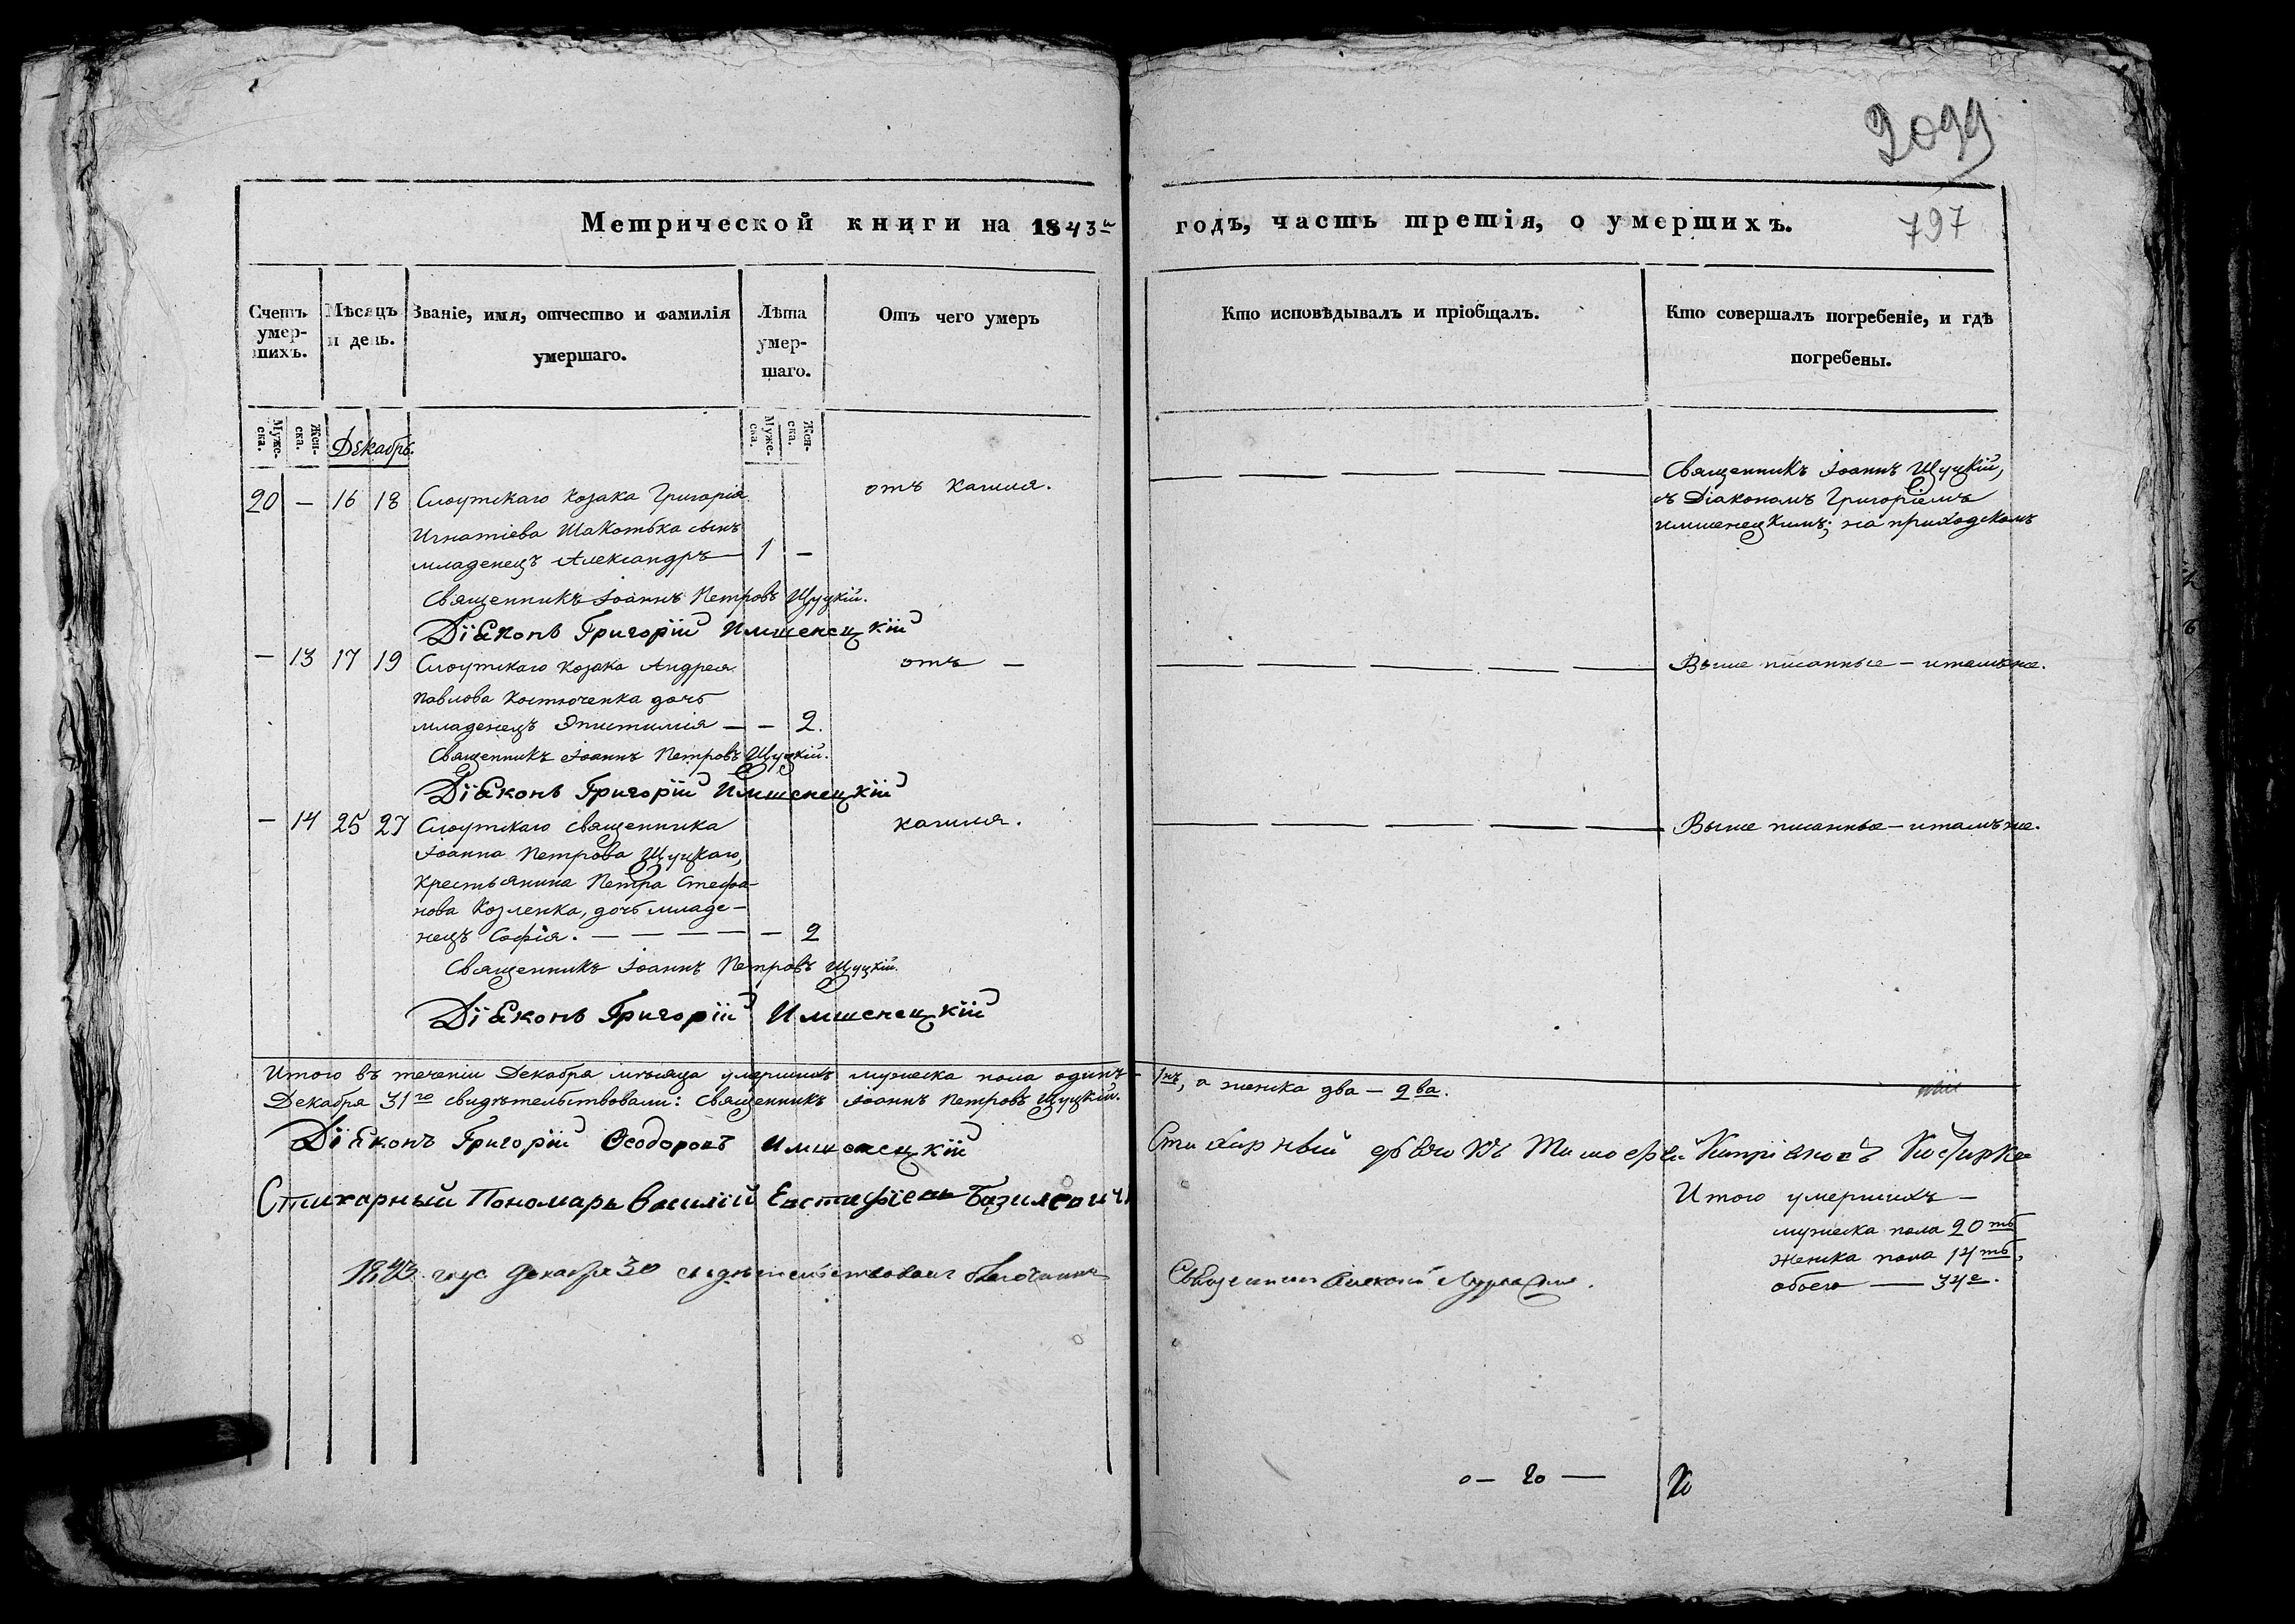 2099
Метрической книги на 1843й годъ, часть третія, о умершихъ.
797
Счетъ умер-шихъ.
Мѣсяцъ и день.
Званіе, имя, отчество и фамилія умершаго.
Лѣта умер-шаго.
Отъ чего умеръ
Кто исповѣдывалъ и пріобщалъ.
Кто совершалъ погребеніе, и гдѣ погребены.
Муже-ска.
Жен-ска.
Декабрь.
Муже-ска.
Жен-ска.
20 — 16 18 Слоутскаго козака Григорія
Игнатіева Шакотька сынъ
младенецъ Александръ — 1 —
отъ кашля.
Священникъ Іоаннъ Щуцкій,
съ Діакономъ Григоріемъ
Имшенецкимъ; на приходскомъ
Священникъ Іоаннъ Петровъ Щуцкій.
Діаконъ Григорій Имшенецкій
— 13 17 19 Слоутскаго козака Андрея
Павлова Костюченка дочь
младенецъ Эпистимія — — 2.
отъ —
Выше писанные — и тамъ же.
Священникъ Іоаннъ Петровъ Щуцкій.
Діаконъ Григорій Имшенецкій
— 14 25 27 Слоутскаго священника
Іоанна Петрова Щуцкаго,
крестьянина Петра Стефа-
нова Козленка, дочь младе-
нецъ Софія. — — — — — 2
кашля.
Выше писанные — и тамъ же.
Священникъ Іоаннъ Петровъ Щуцкій.
Діаконъ Григорій Имшенецкій
Итого въ теченіи Декабря мѣсяца умершихъ мужеска пола одинъ — 1нъ, а женска два — 2ва.
Декабря 31го свидѣтельствовали: Священникъ Іоаннъ Петровъ Щуцкій.
Діаконъ Григорій Ѳеодоровъ Имшенецкій
Стихарный дьячокъ Тимофей Кипріановъ
Стихарный Пономарь Василій Евстафіевъ Базилевичъ
Итого умершихъ —
мужеска пола 20ть
женска пола 14ть,
обоего — 34е.
1843 года Декабря 30 свидѣтельствовалъ благочинный
Священникъ Алексій
0 — 20 —